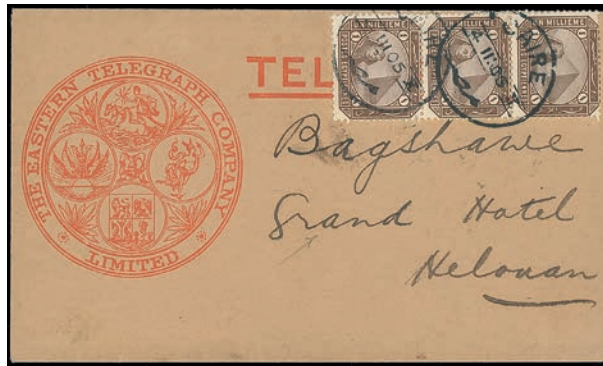 THE EASTERN TELEGRAPH COMPANY
LIMITED
TEL
UN MILLIEME
UN MILLIEME
UN MILLIEME
CAIRE
Bagshawe
Grand Hotel
Helouan